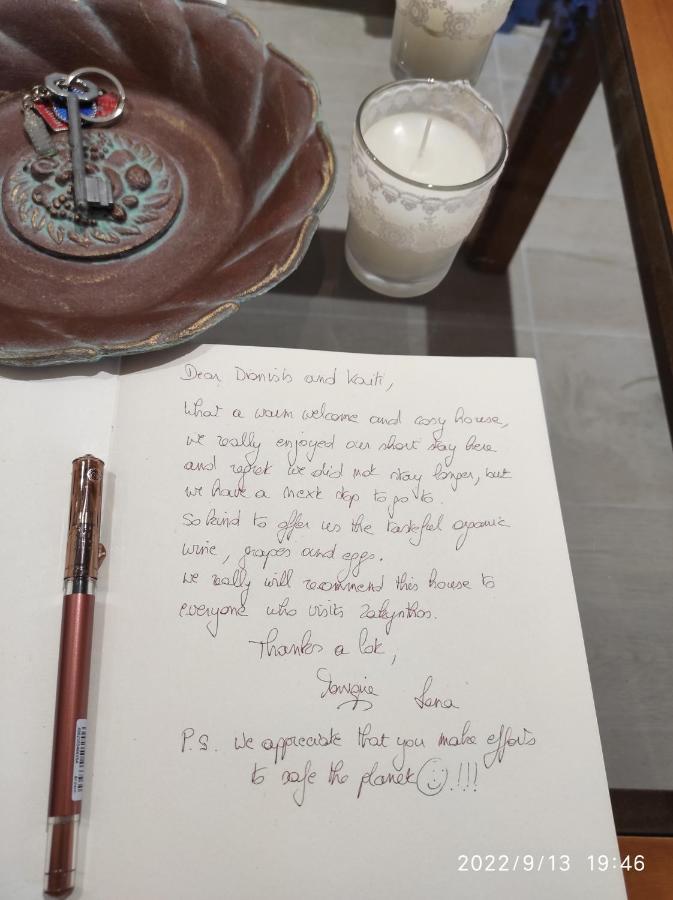 Dear Dionisis and Kaiti,
What a warm welcome and cosy house,
we really enjoyed our short stay here
and regret we did not stay longer, but
we have a next stop to go to.
So kind to offer us the tasteful organic
wine, grapes and eggs.
We really will recommend this house to
everyone who visits Zakynthos.
Thanks a lot,
Lena
P.S. We appreciate that you make efforts
to safe the planet ☺!!!
2022/9/13 19:46